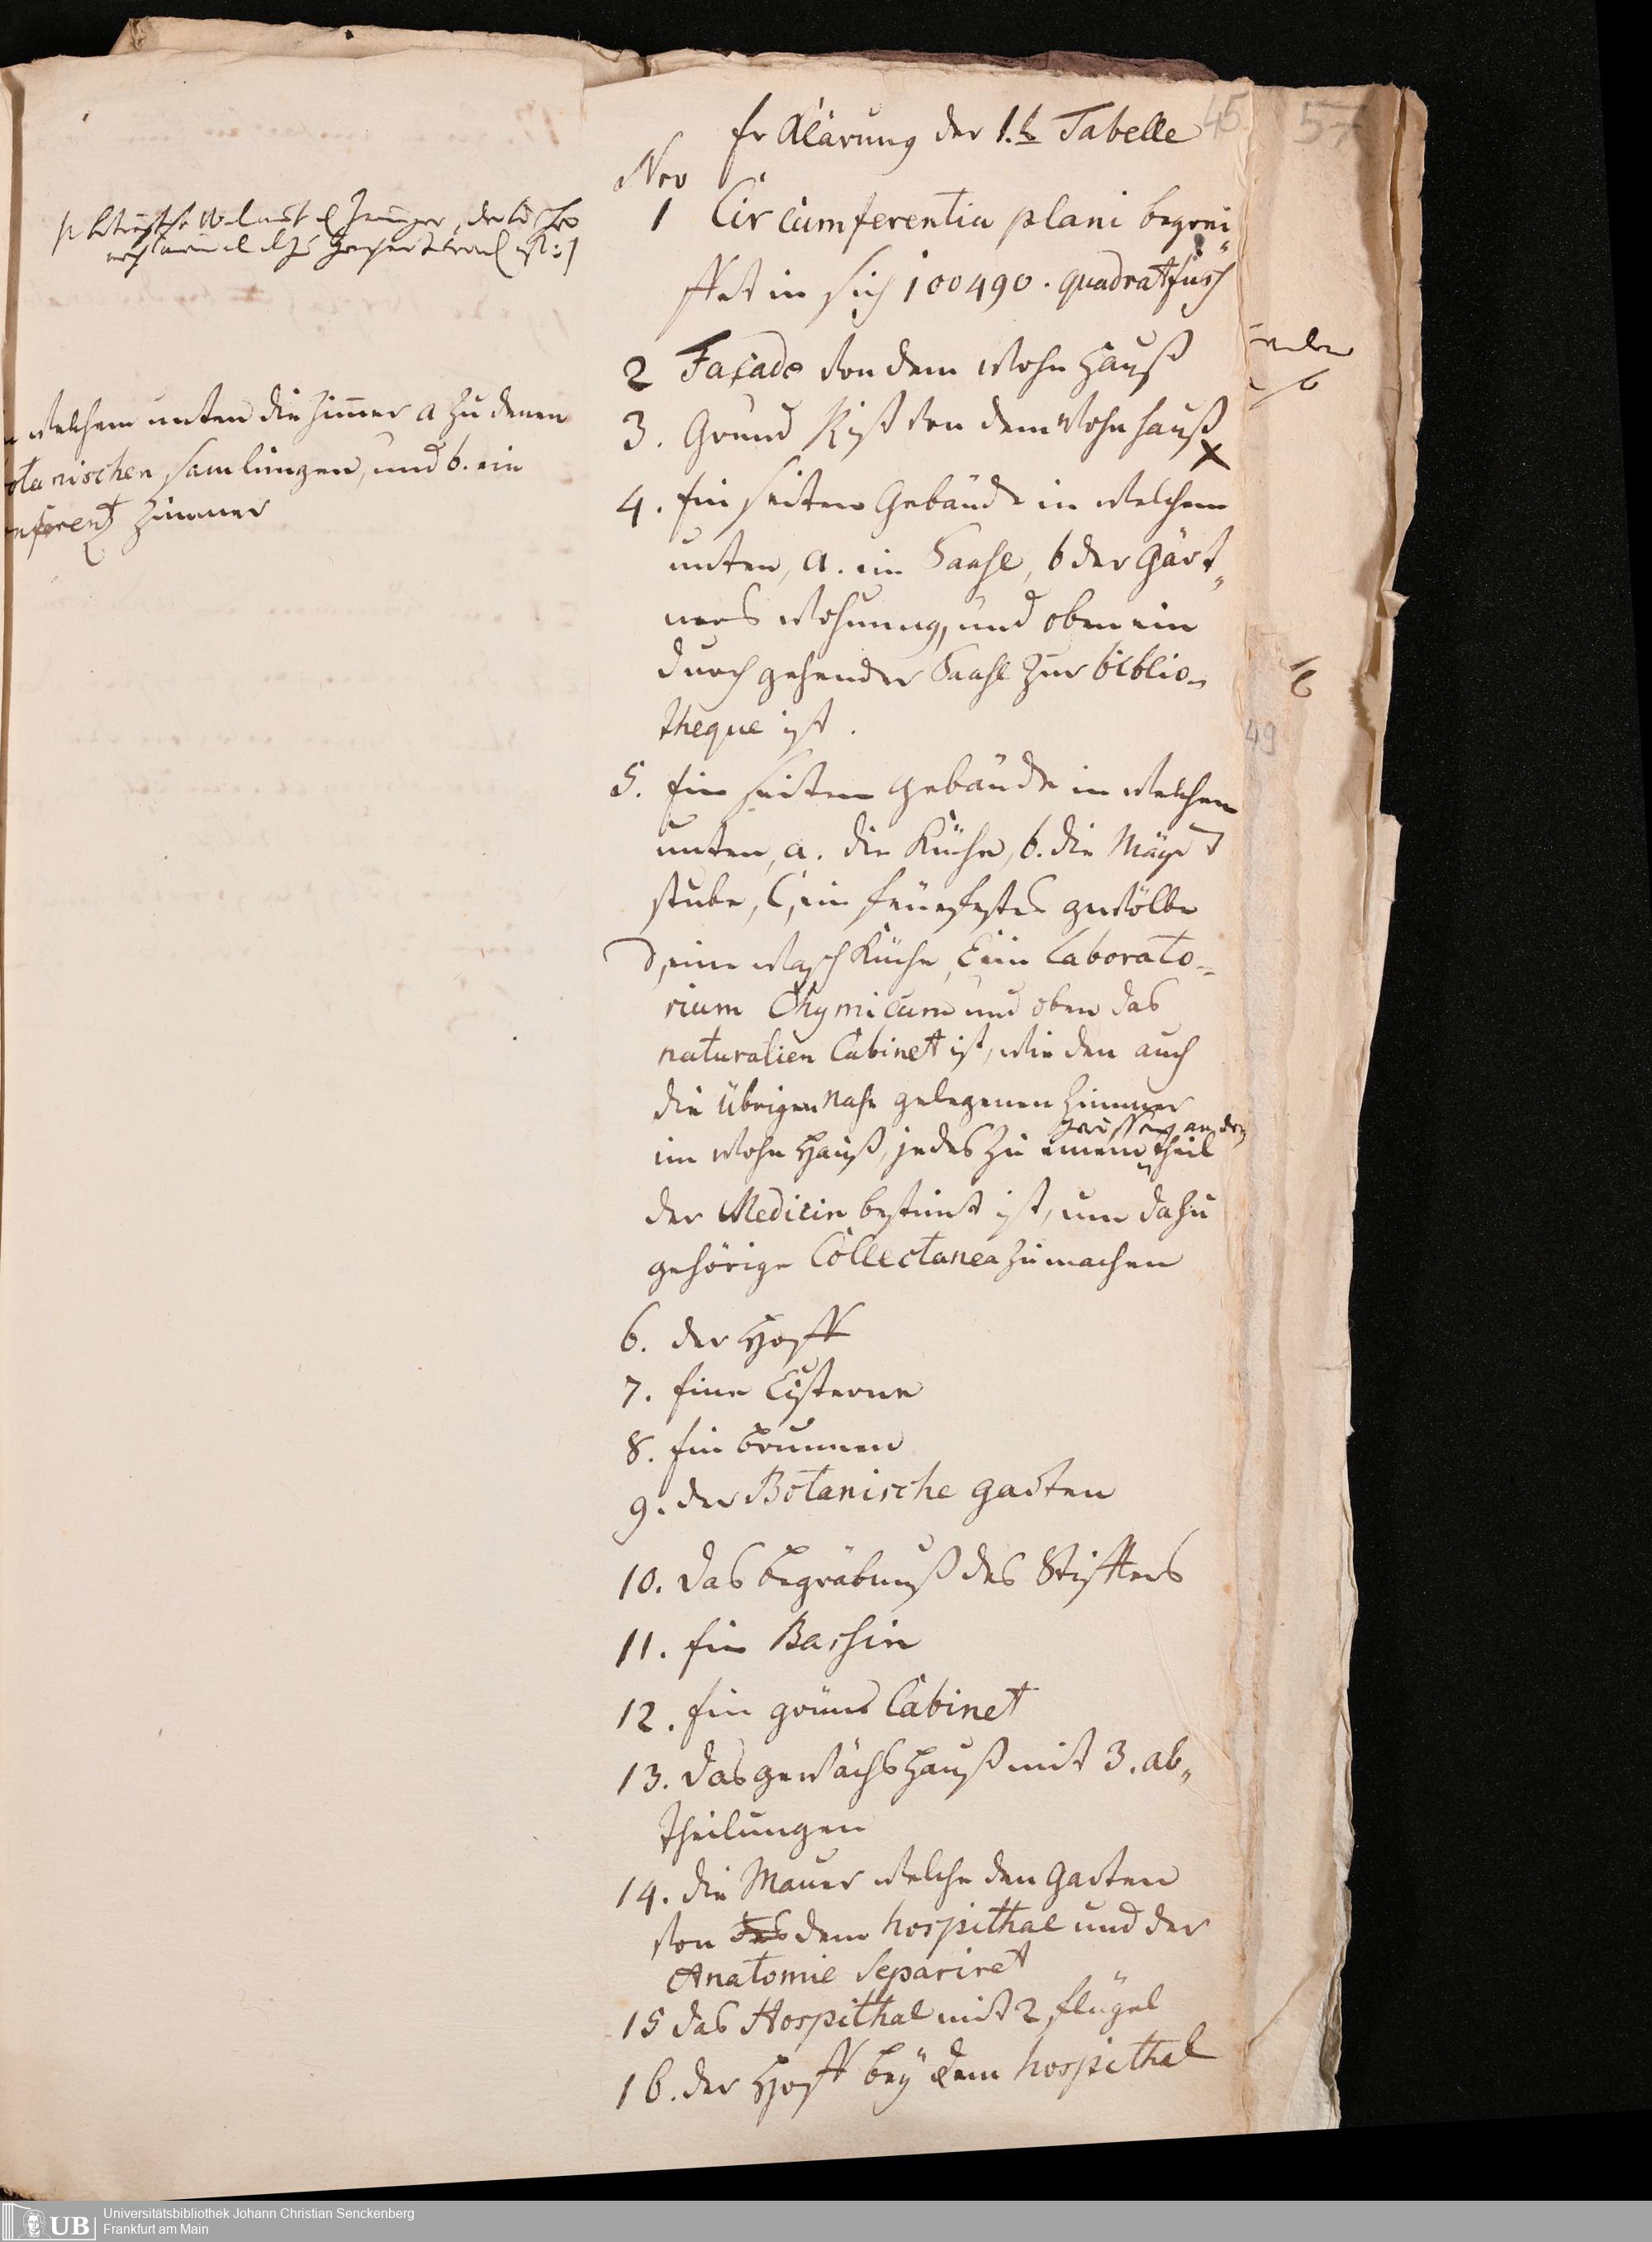 45
57
Erklärung der 1.t Tabelle
Nro
1 Circumferentia plani begrei„
ffet in sich 100490. quadratfusch
2 Façade von dem Wohn Hauß
3. Grund Riß von dem Wohn hauß
4. Ein seiten Gebäude in welchem
unten, a. ein Saahl, b der Gärt„
ners Wohnung, und oben ein
durch gehender Saahl zur biblio„
theque ist.
5. Ein seiten gebäude in welchem
unten, a. die Küche, b. die Mägd
stube, C, ein feuerfestes gewölbe
D, eine Wasch Küche, E ein Laborato„
rium Chymicum und oben das
naturalien Cabinet ist, wie den auch
die übrigen nahe gelegenen Zimmer
im Wohn Hauß, jedes zu einem gewissen theil
der Medicin bestimt ist, um dahin
gehörige Collectanea zu machen
6. der Hoff
7. Eine Cisterne
8. Ein brunnen
9. der Botanische garten
10. das begräbnuß des Stiffters
11. Ein Bassin
12. Ein grüns Cabinet
13. das gewächs Hauß mit 3. ab„
theilungen
14. die Mauer welche den garten
von des dem hospithal und der
Anatomie separiret
15 das Hospithal mit 2 flügel
16. der Hoff bey dem hospithal
welchem unten die Zimmer a zu denen
otanischen samlungen, und b. ein
Zimmer
49
UB
Universitätsbibliothek Johann Christian Senckenberg
Frankfurt am Main